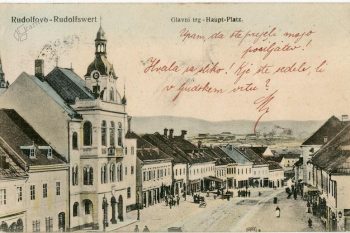 Rudolfovo-Rudolfswert
Glavni trg - Haupt-Platz.
Upam, da ste prejeli mojo
pošiljatev!
Hvala za sliko! Kje ste sedele, li
v ljudskem vrtu?